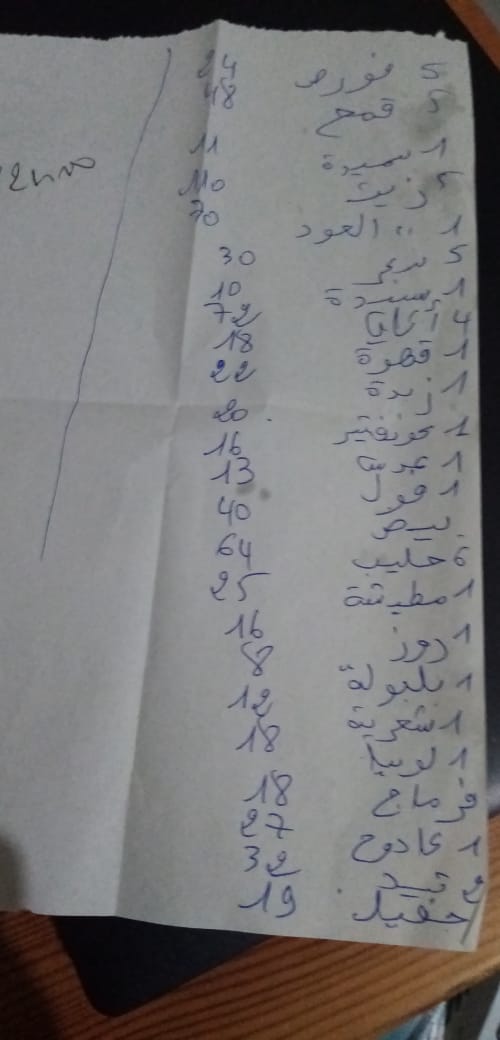 5 فورص 24
5 قمح 48
1 سميدة 11
5 زيت 110
1 " العود 70
5 سكر 30
1 سيدة 10
4 أتاي 72
1 قهوة 18
1 زبدة 22
1 كونفتير 20
1 عدس 16
1 فول 13
بيض 40
6 حليب 64
1 مطيشة 25
1 روز 16
1 بلبولة 8
1 شعرية 12
1 لوبيا 18
فرماج 18
1 كادوم 27
2 تيد 32
جفيل 19